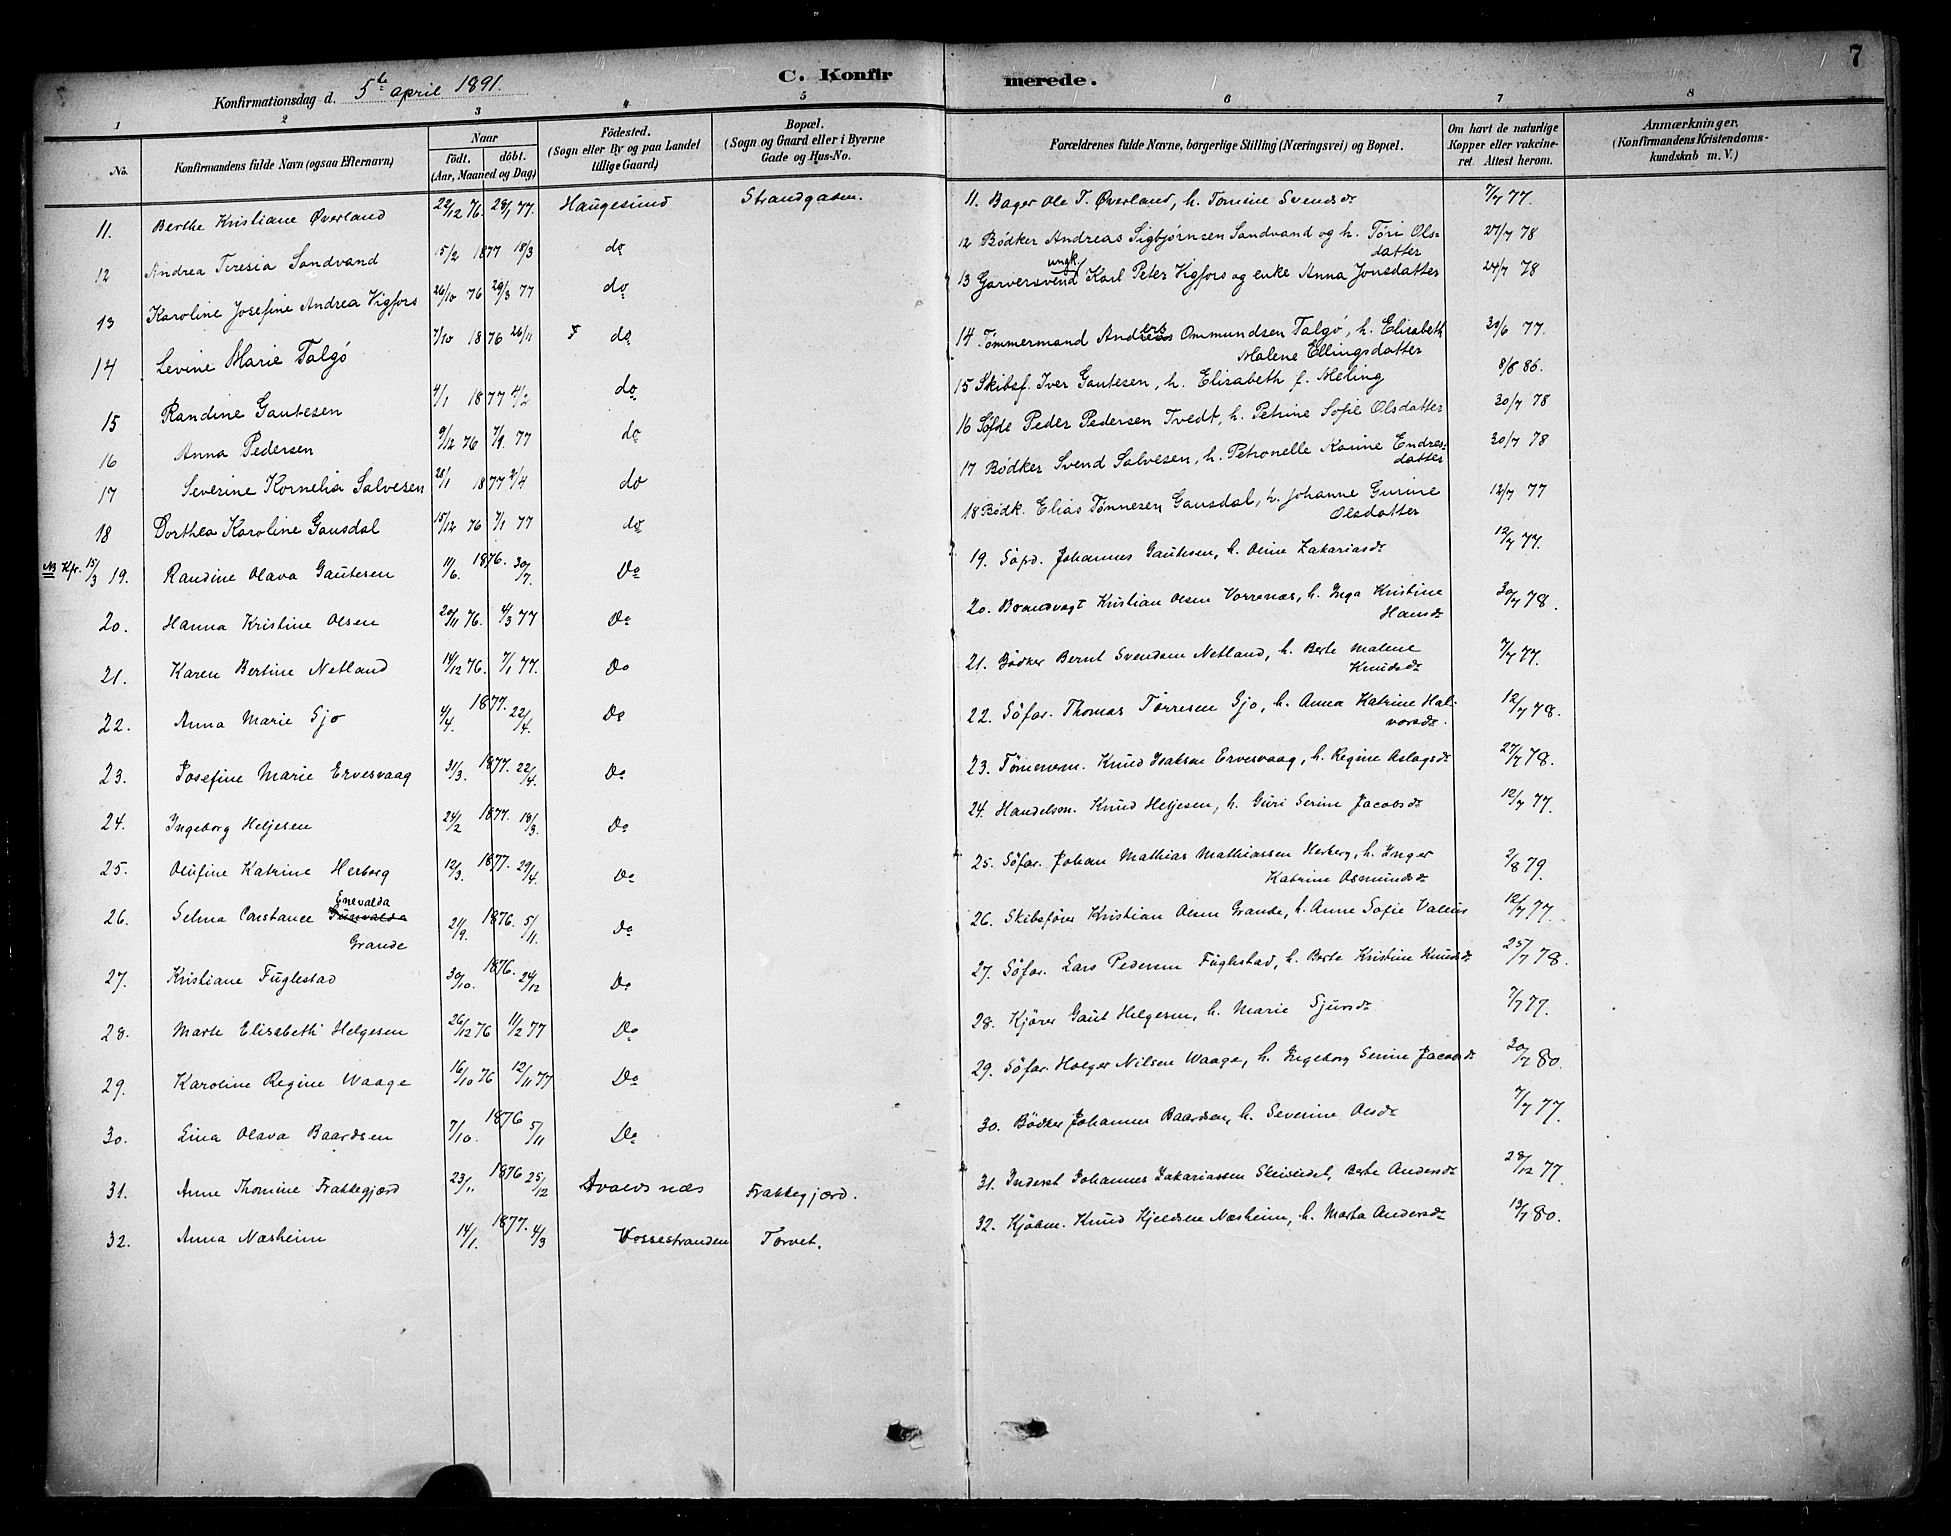 7
C. Konfirmerede.
Konfirmationsdag d. 5te april 1891.
1 2 3 4 5 6 7 8
No. Konfirmandens fulde Navn (ogsaa Efternavn) Naar født. døbt. (Aar, Maaned og Dag) Födested. (Sogn eller By og paa Landet tillige Gaard) Bopæl. (Sogn og Gaard eller i Byerne Gade og Hus-No. Forældrenes fulde Navne, borgerlige Stilling (Næringsvei) og Bopæl. Om havt de naturlige Kopper eller vakcineret. Attest herom. Anmærkninger. (Konfirmandens Kristendomskundskab m. V.)
11. Berthe Kristiane Øverland 22/12 76. 28/1 77. Haugesund Strandgaden. 11. Bager Ole T. Øverland, h. Tomine Svendsdr 7/7 77.
12 Andrea Teresia Sandvand 15/2 1877 18/3 do 12 Bødker Andreas Sigbjørnsen Sandvand og h. Töri Olsdatter 27/7 78
13 Karoline Josefine Andrea Vigfors 26/10 76 29/3 77 do 13 Garversvend ungk. Karl Peter Vigfors og enke Anna Jonsdatter 24/7 78
14 Levine Marie Talgö 7/10 1876 26/11 do 14 Tömmermand Anders Ommundsen Talgö, h. Elisabeth Malene Ellingsdatter 30/6 77.
15 Randine Gautesen 4/1 1877 4/2 do 15 Skibsf. Iver Gautesen, h. Elisabeth f. Meling 8/6 86.
16 Anna Pedersen 9/12 76 7/9. 77 do 16 Söfde Peder Pedersen Tvedt, h. Petrine Sofie Olsdatter 30/7 78
17 Severine Kornelia Salvesen 28/1 1877 2/4 do 17 Bødker Svend Salvesen, h. Petronelle Karine Endresdatter 30/7 78
18 Dorthea Karoline Gausdal 15/12 76 7/1 77 do 18 Bödk. Elias Tönnesen Gausdal, h. Johanne Gurine Olsdatter 12/7 77
NB Kfr. 15/3 19. Randine Olava Gautesen 11/6. 1876. 30/7. Do 19. Söfd. Johannes Gautesen, h. Oline Zakariasdr 12/7 77.
20. Hanna Kristine Olsen 20/11 76. 4/3 77 Do 20. Brandvagt Kristian Olsen Vorrenæs, h. Inga Kristine Hansdr 30/7 78.
21. Karen Bertine Netland 14/12 76. 7/1 77. Do 21. Bödker Bernt Svendsen Netland, h. Berte Malene Knudsdr 7/7 77.
22. Anna Marie Gjo 4/4. 1877. 22/4. Do 22. Söfar. Thomas Törresen Gjo, h. Anna Katrine Halvorsdr. 12/7 78.
23. Josefine Marie Ervesvaag 31/3. 1877. 22/4. Do 23. Tømmerm. Knud Isaksen Ervesvaag, h. Regine Aslagsdr 27/7 78.
24. Ingeborg Heljesen 24/2 1877. 18/3. Do 24. Handelsm. Knud Heljesen, h. Guri Serine Jacobsdr 12/7 77.
25. Olufine Katrine Herborg 12/3. 1877. 29/4. Do 25. Söfar. Johan Mathias Mathiassen Herborg, h. Inger Katrine Osmundsdr 2/8 79
26. Selma Constance Enevalda Grande 21/9. 1876. 5/11. Do 26. Skibsfører Kristian Olsen Grande, h. Anne Sofie Valeur 12/7 77.
27. Kristiane Fuglestad 30/10. 1876. 24/12 Do 27. Söfar. Lars Pedersen Fuglestad, h. Berte Kristine Knudsdr 25/7 78.
28. Marte Elisabeth Helgesen 26/12 76 11/2 77 Do 28. Kjörer Gaut Helgesen, h. Marie Sjursdr 7/7 77.
29. Karoline Regine Waage 16/10 76 12/11 77 Do 29. Söfar. Holger Nilsen Waage, h. Ingeborg Serine Jacobsdr 30/7 80.
30. Lina Olava Baardsen 7/10. 1876 5/11 Do 30. Bödker Johannes Baardsen, h. Severine Olsdr 7/7 77.
31. Anne Thomine Frakkegjerd 23/11 1876 25/12 Avaldsnæs Frakkegjærd. 31. Inderst Johannes Zakariassen Skeiseidet, Berte Andersdr 28/12 77
32. Anna Næsheim 14/1. 1877. 4/3 Vossestranden Torvet. 32. Kjöbm. Knud Kjeldsen Næsheim, h. Marta Andersdr 13/7 80.